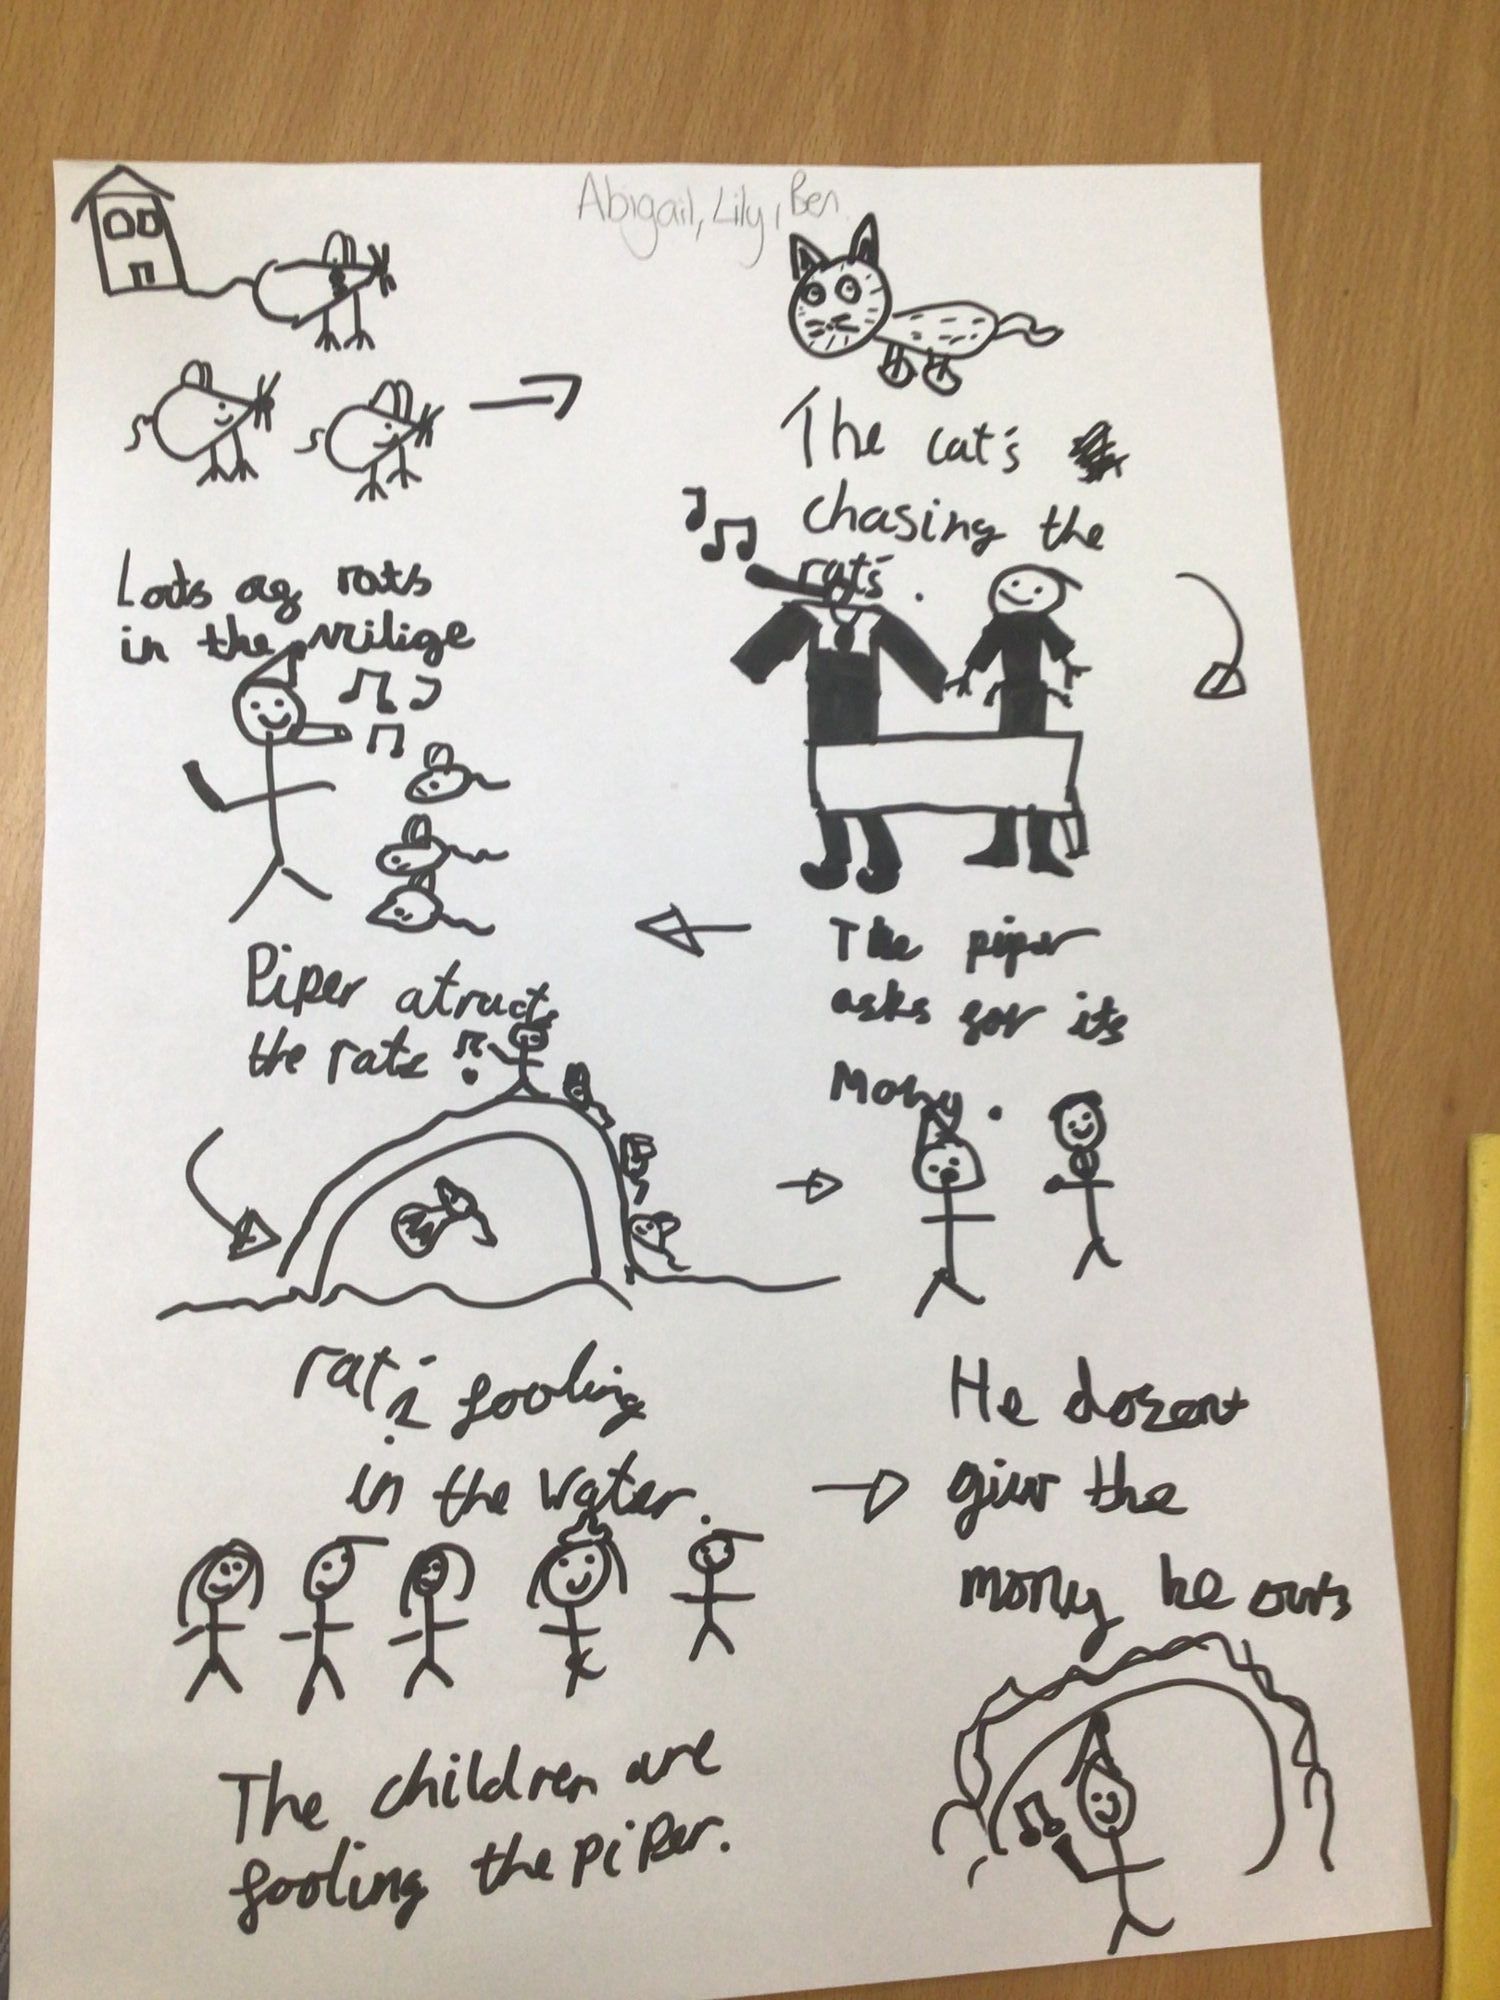 Abigail, Lily, Ben
Lots og rats
in the vrilige
The cat's
chasing the
rat's.
The piper
asks gor its
Mony.
Piper atructs
the rats
rat's gooling
in the water.
He dozent
giw the
mony he ows
The children are
gooling the piper.